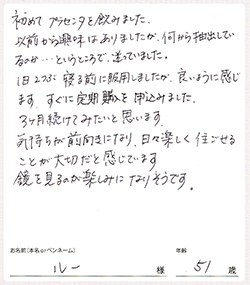 初めて プラセンタを飲みました。
以前から興味はありましたが、何から抽出してい
るのか…というところで、迷っていました。
1日2つぶ 寝る前に服用しましたが、良いように感じ
ます。すぐに定期購入を申込みました。
3ヶ月続けてみたいと思います。
気持ちが前向きになり、日々楽しく過ごせる
ことが大切だと感じています。
鏡を見るのが楽しみになりそうです。
お名前(本名orペンネーム) 年齢
ルー 様 51 歳